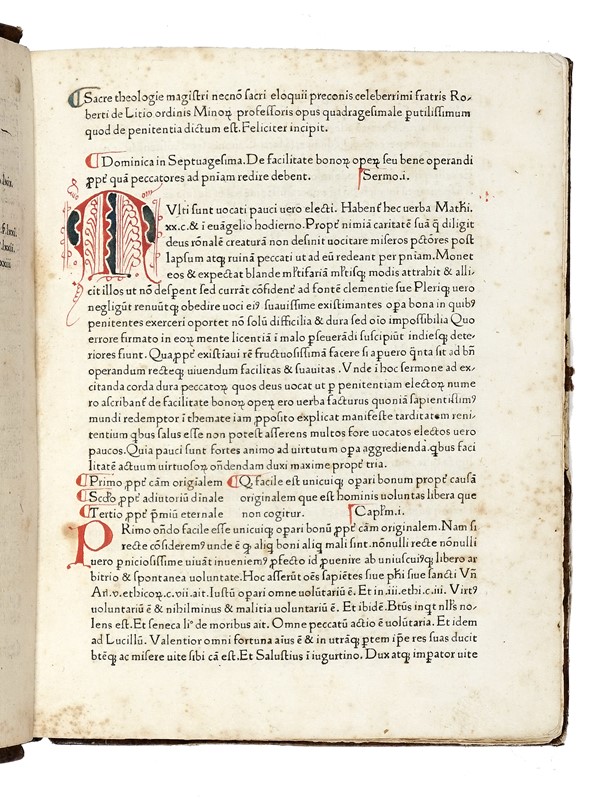 Sacre theologie magistri necnō sacri eloquii preconis celeberrimi fratris Ro-
berti de Litio ordinis Minoꝝ professoris opus quadragesimale ꝑutilissimum
quod de penitentia dictum est. Feliciter incipit.
Dominica in Septuagesima. De facilitate bonoꝝ opeꝝ seu bene operandi
ꝓpt᷑ quā peccatores ad pn̄iam redire debent. Sermo.i.
MVlti sunt uocati pauci uero electi. Habent᷑ hec uerba Mat̄hi.
xx.c. & ī euāgelio hodierno. Propt᷑ nimiā caritatē suā q̄ diligit
deus rōnalē creaturā non definit uocitare miseros pctōres post
lapsum atqꝫ ruinā peccati ut ad eū redeant per pn̄iam. Monet
eos & expectat blande mīsericordiam modis attrahit & alli-
cit illos ut nō desꝑent sed currāt cōfident᷑ ad fontē clementie sue Pleriqꝫ uero
negligūt renuūtqꝫ obedire uoci eiꝰ suauissime existimantes oꝑa bona in quibꝰ
penitentes exerceri oportet nō solū difficilia & dura sed oīo impossibilia Quo
errore firmato in eoꝝ mente licentiā ī malo ꝑseuerādi suscipiūt indiesqꝫ dete-
riores fiunt. Quaꝓpt᷑ existīaui rē fructuosissimā facere si a puero
operandum recteqꝫ uiuendum facilitas & suauitas. Vnde ī hoc sermone ad ex-
citanda corda dura peccatoꝝ quos deus uocat ut ꝑ penitentiam electoꝝ nume
ro ascribant᷑ de facilitate bonoꝝ opeꝝ ero uerba facturus quoniā sapientissimꝰ
mundi redemptor ī themate iam ꝓposito explicat manifeste tarditatem reni-
tentium qbus salus esse non potest asserens multos fore uocatos electos uero
paucos. Quia pauci sunt fortes animo ad uirtutum oꝑa aggredienda. qbus faci
litatē actuum uirtuosoꝝ on̄dendam duxi maxime propt᷑ tria.
Primo ꝓpt᷑ cām origialem Q, facile est unicuiqꝫ oꝑari bonum propt᷑ causā
Scd̄o ꝓpt᷑ adiutoriū diuīale originalem que est hominis uoluntas libera que
Tertio ꝓpt᷑ p̄miū eternale non cogitur. Capl̄m.i.
PRimo on̄do facile esse unicuiqꝫ oꝑari bonū ꝓpt᷑ cām originalem. Nam si
recte cōsideremꝰ unde ē qꝫ aliqꝫ boni aliqꝫ mali sint. nōnulli recte nōnulli
uero ꝑniciosissime uiuāt inueniemꝰ ꝓfecto id ꝓuenire ab uniuscuiꝰqꝫ libero ar
bitrio & spontanea uoluntate. Hoc asserūt oēs sapiētes siue phi siue sancti Vn̄
Ari.v.ethicoꝝ.c.vii.ait. Iustū oꝑari omne uolūtariū ē. Et in.iii.ethi.c.iii. Virtꝰ
uoluntariū ē & nihilminus & malitia uoluntariū ē. Et ibidē. Btūs inqt nll̄s no-
lens est. Et seneca li° de moribus ait. Omne peccatū actio ē uolūtaria. Et idem
ad Lucillū. Valentior omni fortuna aīus ē & in utrāqꝫ ꝑtem ip̄e res suas ducit
btēqꝫ ac misere uite sibi cā est. Et Salustius ī iugurtino. Dux atqꝫ imꝑator uite